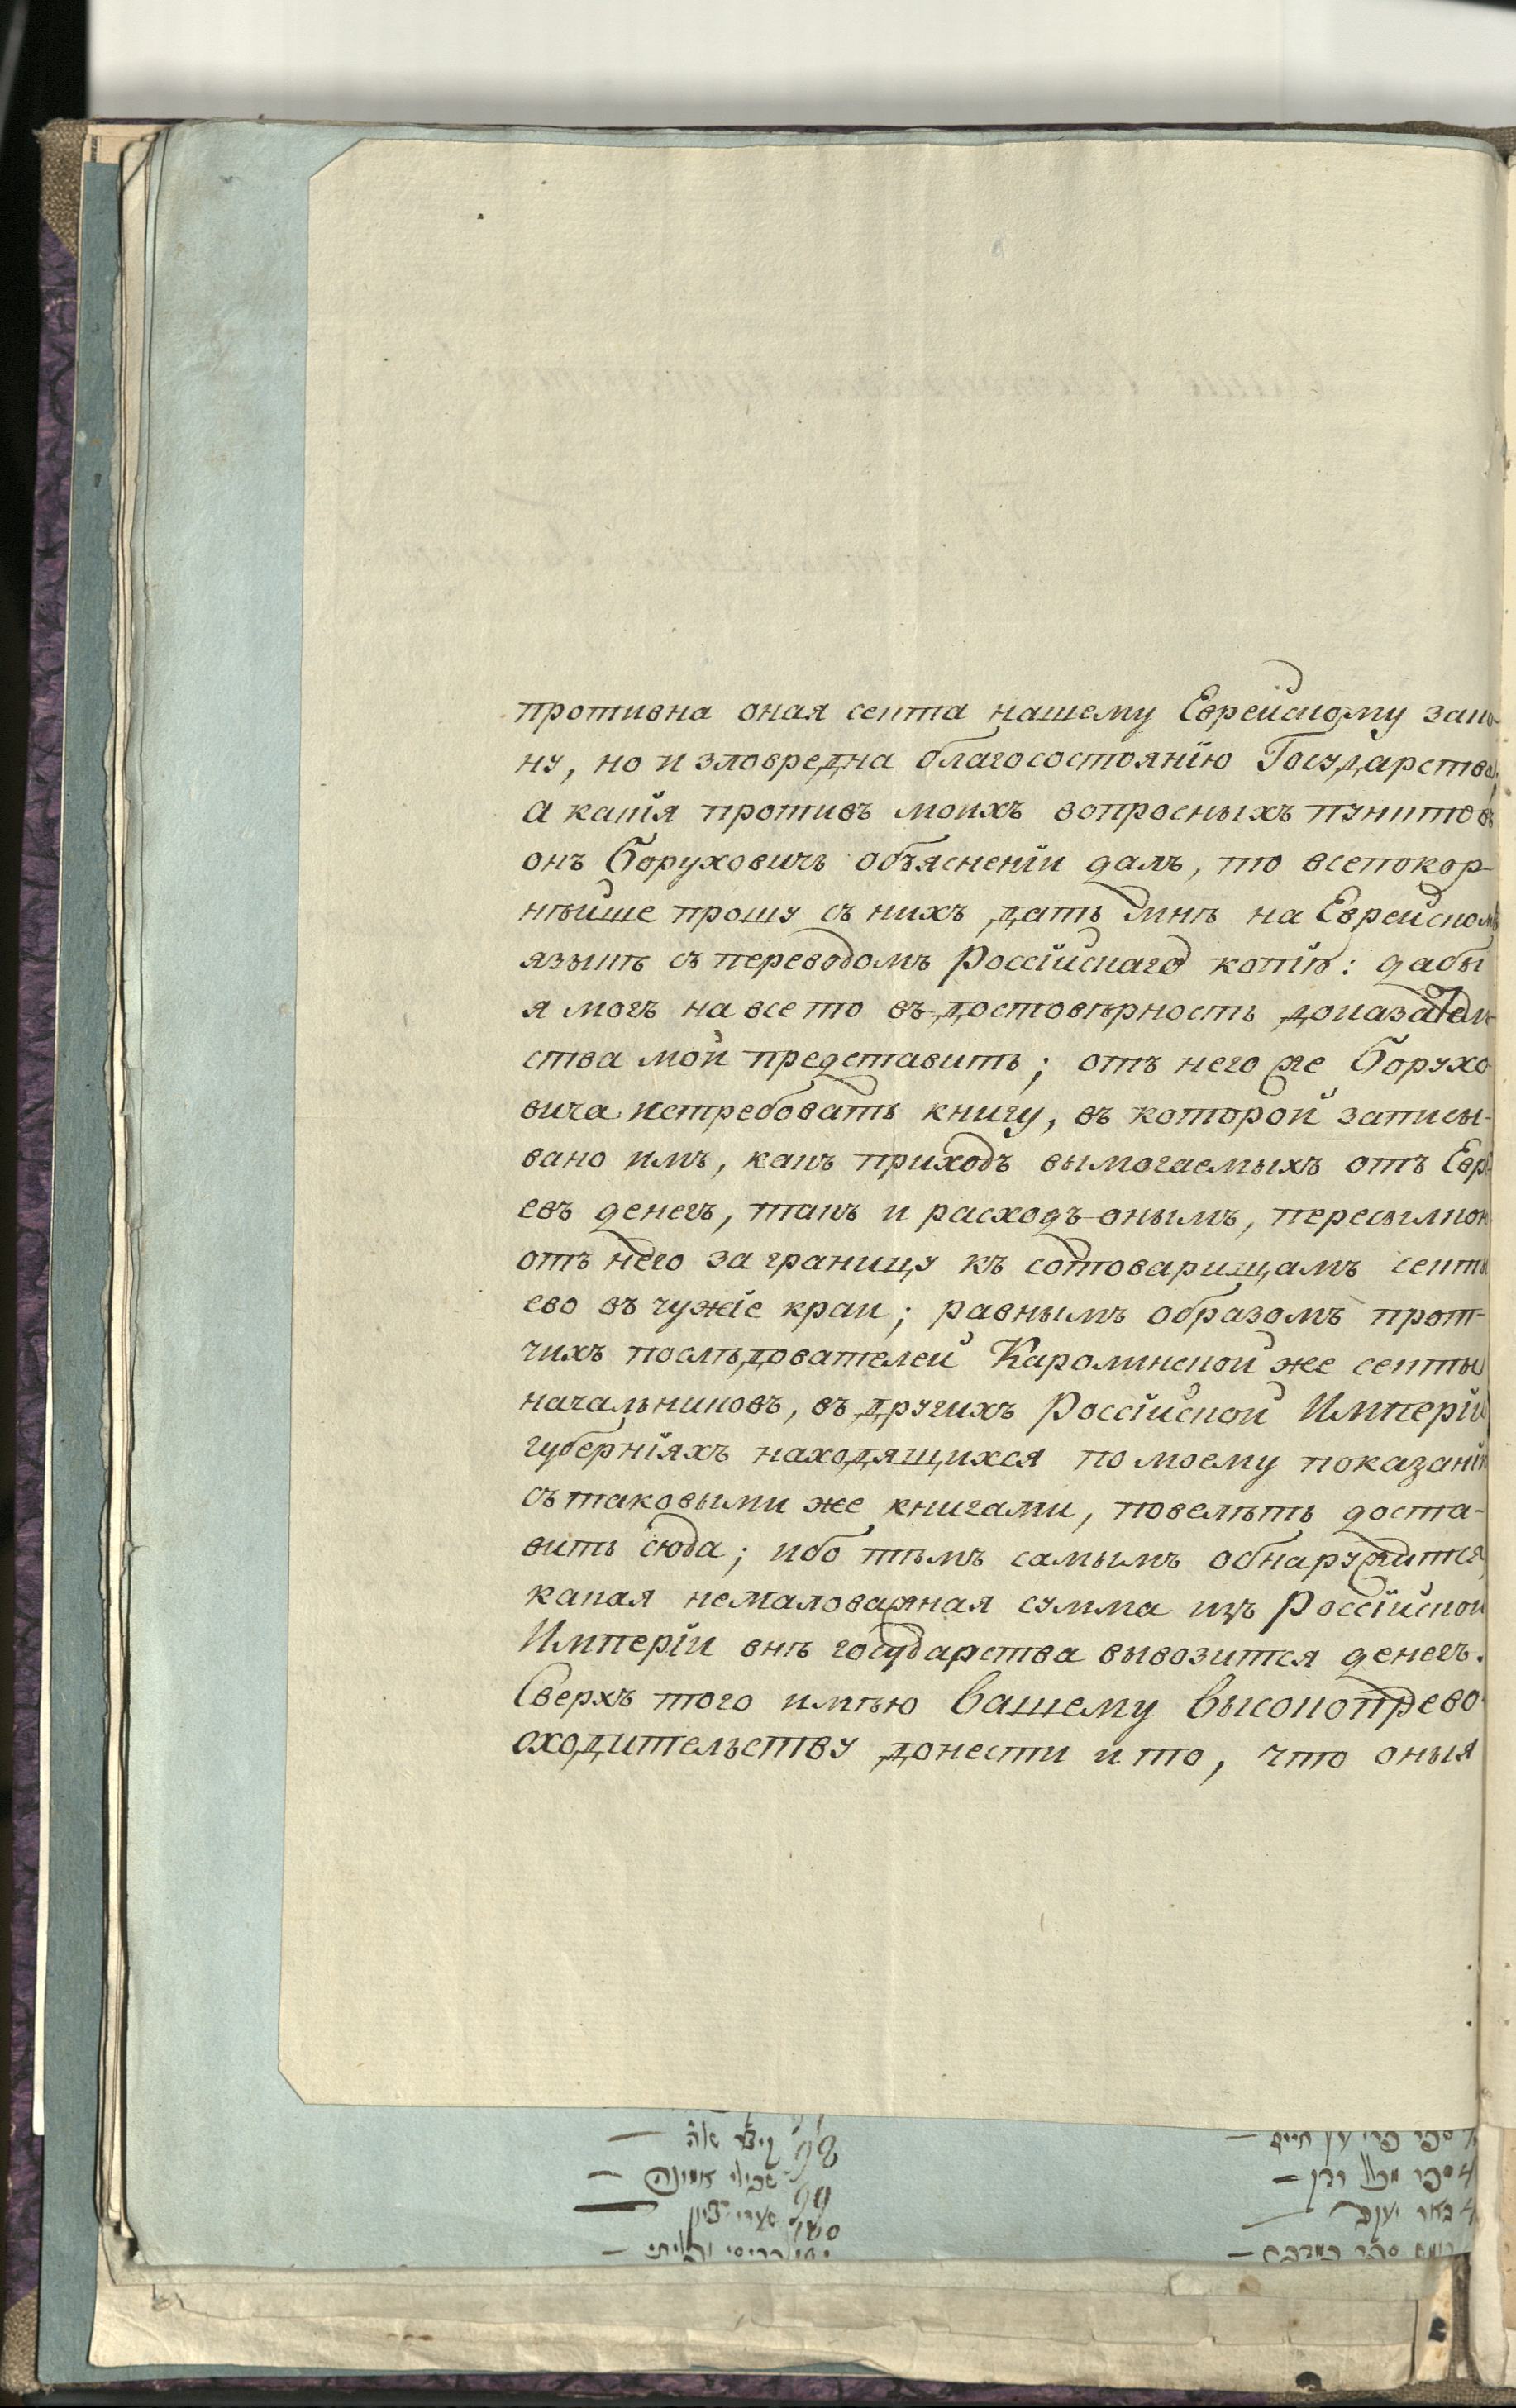 противна оная секта нашему Еврейскому зако-
ну, но и зловредна благосостоянїю Государства,
А какїя противъ моихъ вопросныхъ пунктовъ
онъ Боруховичъ объясненїи далъ, то всепокор-
нѣйше прошу съ нихъ дать мнѣ на Еврейскомъ
языкѣ съ переводомъ Россїйскаго копїю: дабы
я могъ на все то въ достовѣрность доказатель-
ства мои представить; отъ него же Борухо-
вича истребовать книгу, въ которой записы-
вано имъ, какъ приходъ вымогаемыхъ отъ Евре-
евъ денегъ, такъ и расходъ онымъ, пересылкою
отъ него за границу къ сотоварищамъ секты
ево въ чужїе краи; равнымъ образомъ прот-
чихъ послѣдователей Каролинской же секты
начальниковъ, въ другихъ Россїйской Имперїи
губернїяхъ находящихся по моему показанїю
съ таковыми же книгами, повелѣть доста-
вить сюда; ибо тѣмъ самымъ обнаружится,
какая немаловажная сумма изъ Россїйской
Имперїи внѣ государства вывозится денегъ.
Сверхъ того имѣю Вашему Высокопрево-
сходительству донести и то, что оныя
98 קיצר שלה —
99 שבילי אמונה —
100 שערי ציון —
ספר פרי עץ חיים —
4 ספר
4 באר יעקב